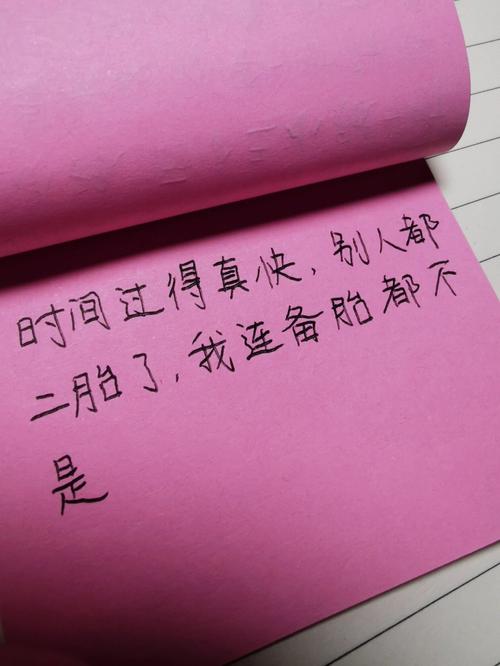 时间过得真快，别人都
二胎了，我连备胎都不
是